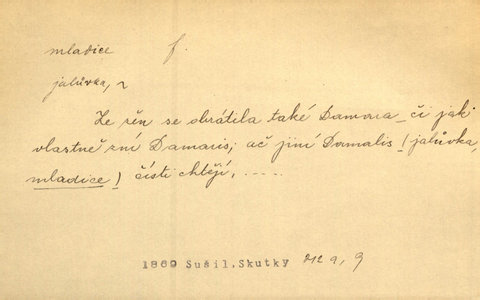 mladice f.
jalůvka, ~
Ze žen se obrátila také Damara čí jak
vlastně zní Damaris; ač jiní Damalis (jalůvka,
mladice) čísti chtějí, .....
1869 Sušil. Skutky 9